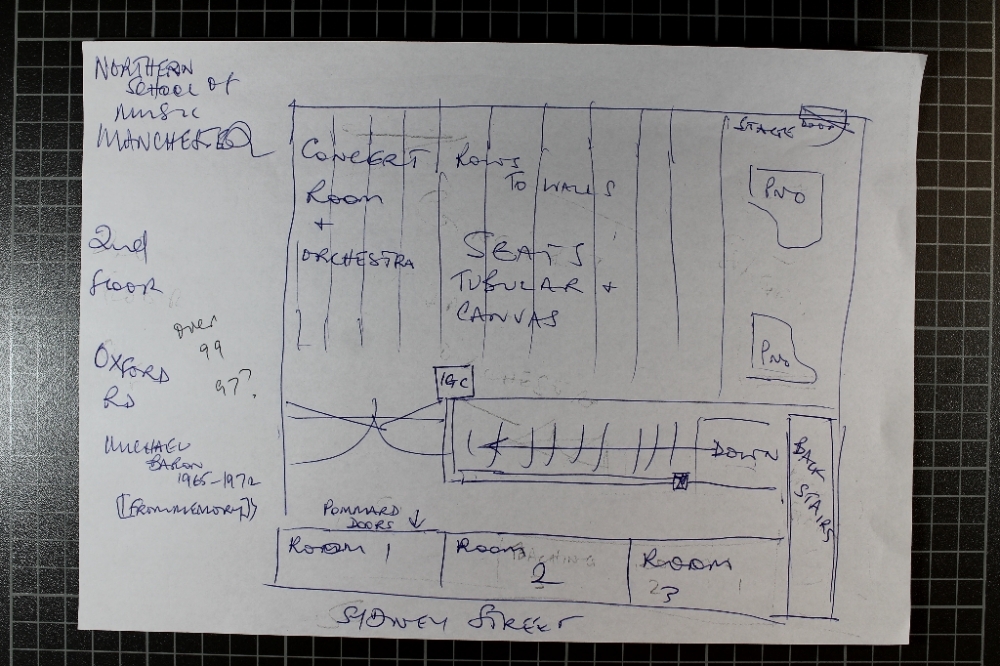 NORTHERN
SCHOOL OF
MUSIC
MANCHESTER
2nd
floor
over
99
97?
OXFORD
RD
MICHAEL
BARON
1965-1972
[FROM MEMORY]
CONCERT
ROOM
+
ORCHESTRA
ROWS
TO WALLS
SEATS
TUBULAR +
CANVAS
STAGE
DOOR
PNO
PNO
DOWN
BACK
STAIRS
DOORS
ROOM 1
ROOM
2
ROOM
3
SIDNEY STREET